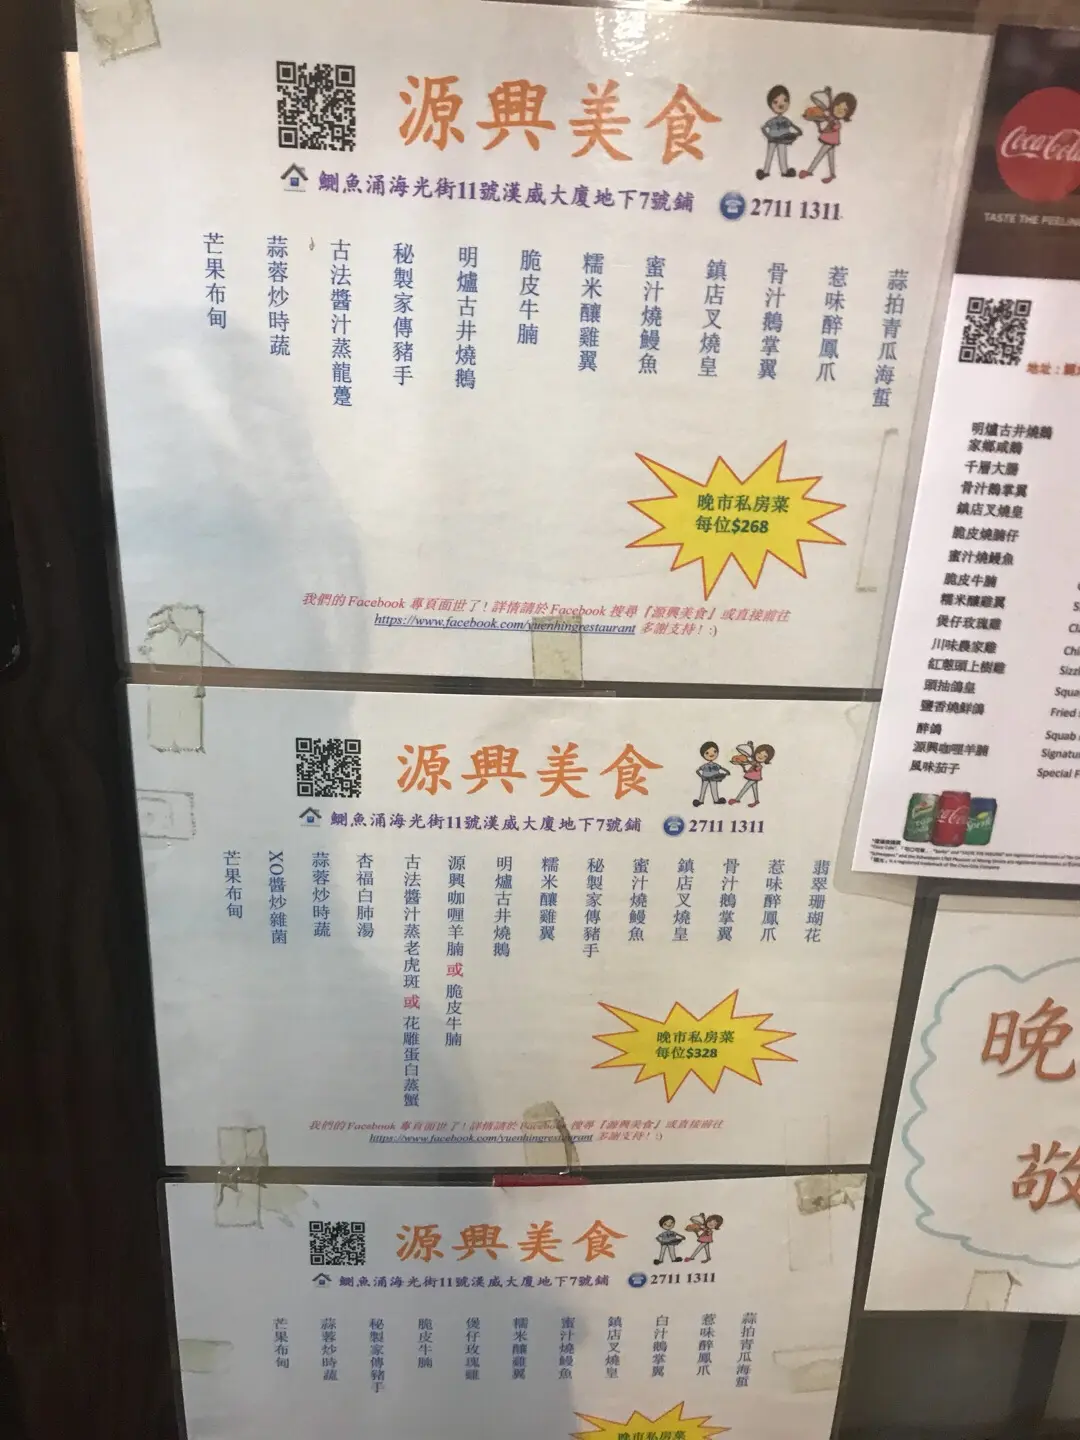 源興美食
鰂魚涌海光街11號漢威大廈地下7號鋪 2711 1311
蒜拍青瓜海蜇
惹味醉鳳爪
骨汁鵝掌翼
鎮店叉燒皇
蜜汁燒鰻魚
糯米釀雞翼
脆皮牛腩
明爐古井燒鵝
秘製家傳豬手
古法醬汁蒸龍躉
蒜蓉炒時蔬
芒果布甸
晚市私房菜
每位$268
我們的Facebook 專頁面世了!詳情請於Facebook 搜尋『源興美食』或直接前往
https://www.facebook.com/yuenhingrestaurant 多謝支持! :)
源興美食
鰂魚涌海光街11號漢威大廈地下7號鋪 2711 1311
翡翠珊瑚花
惹味醉鳳爪
骨汁鵝掌翼
鎮店叉燒皇
蜜汁燒鰻魚
秘製家傳豬手
糯米釀雞翼
明爐古井燒鵝
源興咖喱羊腩 或 脆皮牛腩
古法醬汁蒸老虎斑 或 花雕蛋白蒸蟹
杏福白肺湯
蒜蓉炒時蔬
XO醬炒雜菌
芒果布甸
晚市私房菜
每位$328
我們的Facebook 專頁面世了!詳情請於Facebook 搜尋『源興美食』或直接前往
https://www.facebook.com/yuenhingrestaurant 多謝支持! :)
源興美食
鰂魚涌海光街11號漢威大廈地下7號鋪 2711 1311
蒜拍青瓜海蜇
惹味醉鳳爪
白汁鵝掌翼
鎮店叉燒皇
蜜汁燒鰻魚
糯米釀雞翼
煲仔玫瑰雞
脆皮牛腩
秘製家傳豬手
蒜蓉炒時蔬
芒果布甸
晚市私房菜
Coca-Cola
TASTE THE FEELING
地址:
明爐古井燒鵝
家鄉咸鵝
千層大腸
骨汁鵝掌翼
鎮店叉燒皇
脆皮燒腩仔
蜜汁燒鰻魚
脆皮牛腩
糯米釀雞翼
煲仔玫瑰雞
川味農家雞
紅蔥頭上樹雞
頭抽鴿皇
鹽香燒鮮鴿
醉鴿
源興咖喱羊腩
風味茄子
Chi
Sizzl
Squa
Fried
Squab
Signatu
Special F
晚
敬